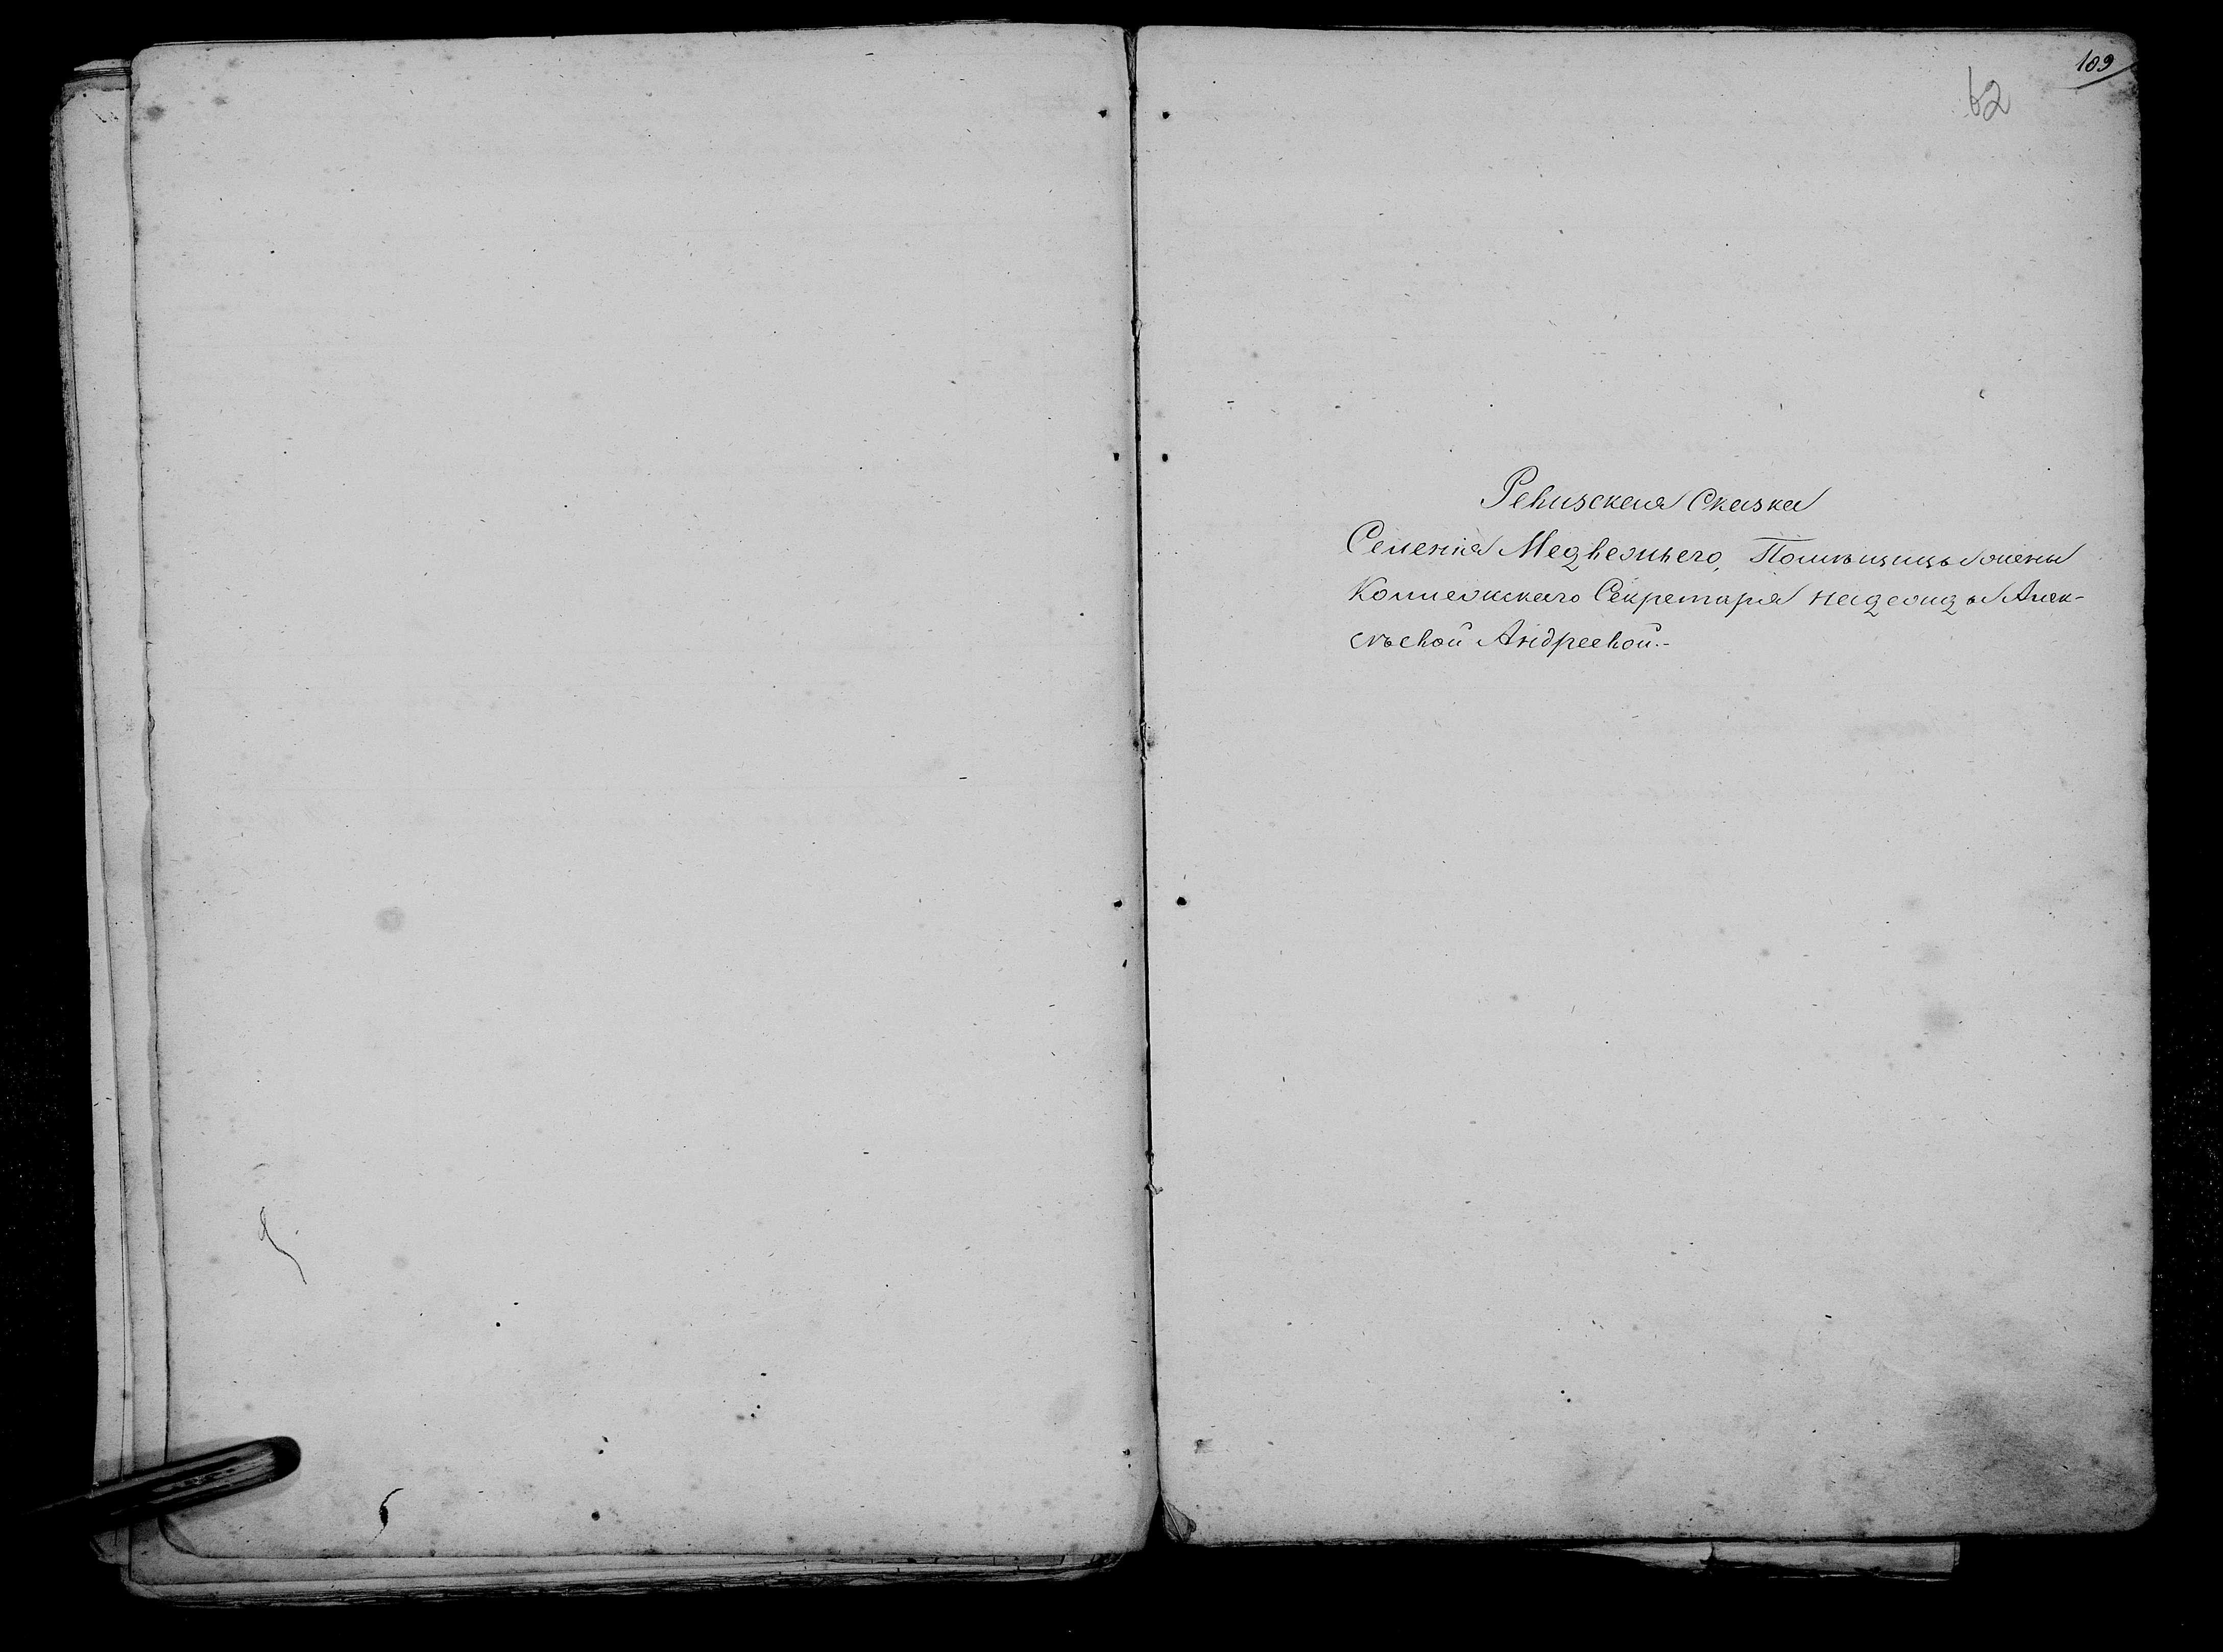 189
62
Ревизская Сказка
Селенія Медвежьего, Помѣщицы жены
Коллежскаго Секретаря надежды Алек-
сѣевой Андреевой.-